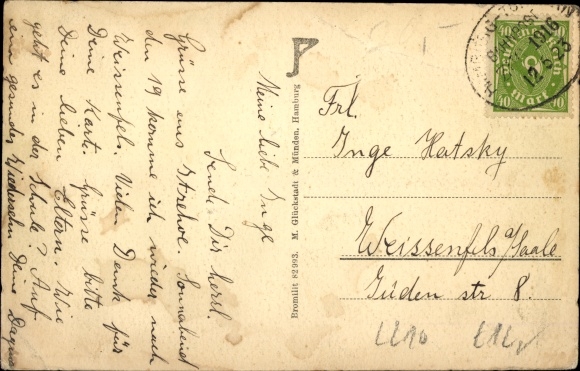 Meine liebe Inge
Sende Dir herzl.
Grüsse aus Itzehoe. Sonnabend
den 19 komme ich wieder nach
Weissenfels. Vielen Dank für
Deine Karte. Grüsse bitte
Deine lieben Eltern. Wie
geht es in der Schule? Auf
ein gesundes Wiedersehn Deine
Bromilit 82993. M. Glückstadt & Münden, Hamburg
Frl.
Inge Hatsky
Weissenfels a/Saale
Jüden str 8.
10 10
BAHNPOST
1916
12.5.23